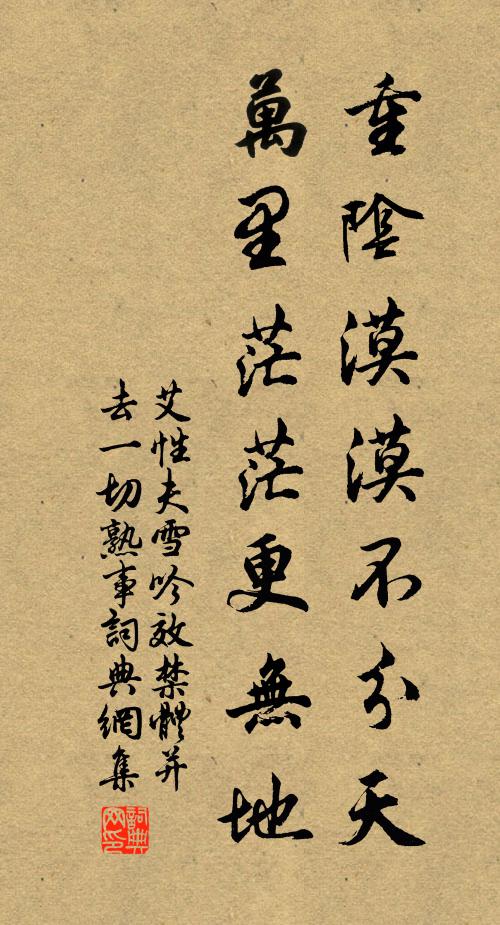 重陰漠漠不分天
萬里茫茫更無地
艾性夫雪吟效禁體并
去一切熟事詞典網集
詞典网印